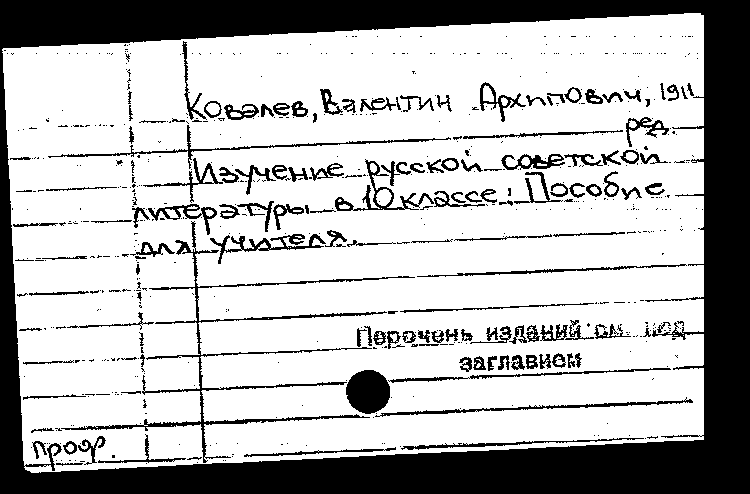 Ковалев, Валентин Архипович, 1911
ред.
Изучение русской советской
литературы в 10 классе: Пособие
для учителя.
Перечень изданий см. под
заглавием
проф.